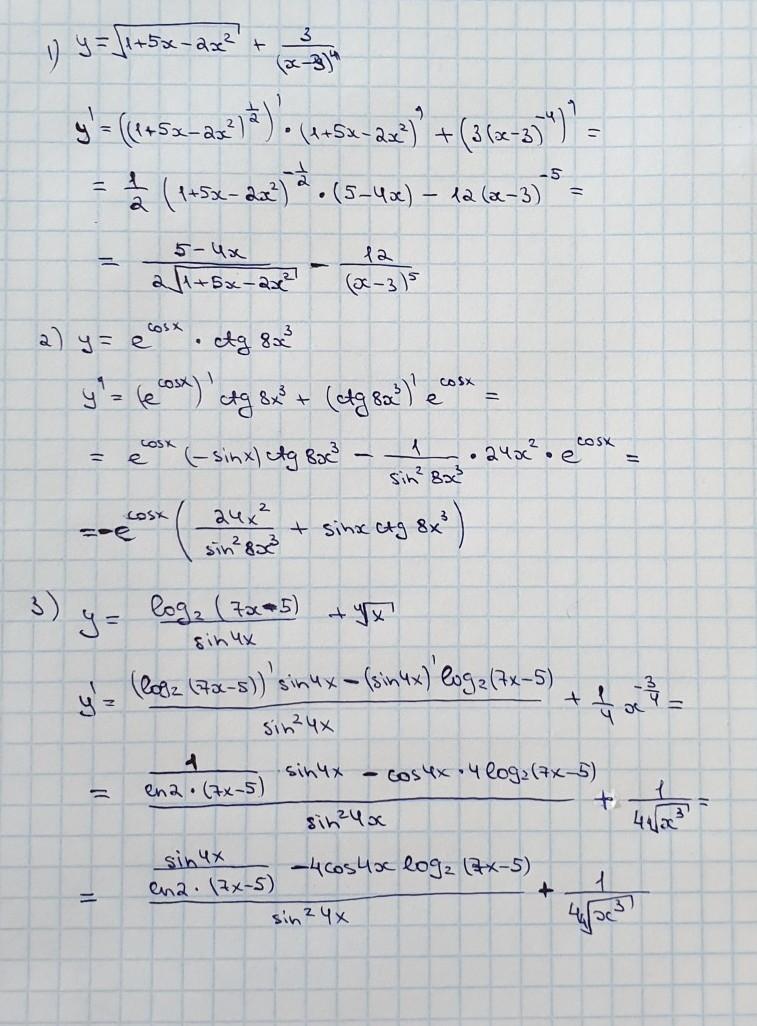 1) y = √(1+5x−2x²) + 3/(x−3)⁴
y' = ((1+5x−2x²)^(1/2))' · (1+5x−2x²)' + (3(x−3)^(−4))' =
= 1/2 (1+5x−2x²)^(−1/2) · (5−4x) − 12(x−3)^(−5) =
= (5−4x)/(2√(1+5x−2x²)) − 12/(x−3)⁵
2) y = e^(cosx) · ctg 8x³
y' = (e^(cosx))' ctg 8x³ + (ctg 8x³)' e^(cosx) =
= e^(cosx) (−sinx) ctg 8x³ − 1/(sin² 8x³) · 24x² · e^(cosx) =
= −e^(cosx) (24x²/(sin² 8x³) + sinx ctg 8x³)
3) y = log₂(7x−5)/(sin4x) + ∜x
y' = ((log₂(7x−5))' sin4x − (sin4x)' log₂(7x−5))/(sin²4x) + 1/4 x^(−3/4) =
= (1/(ln2·(7x−5)) · sin4x − cos4x · 4log₂(7x−5))/(sin²4x) + 1/(4∜(x³)) =
= (sin4x/(ln2·(7x−5)) − 4cos4x log₂(7x−5))/(sin²4x) + 1/(4∜(x³))